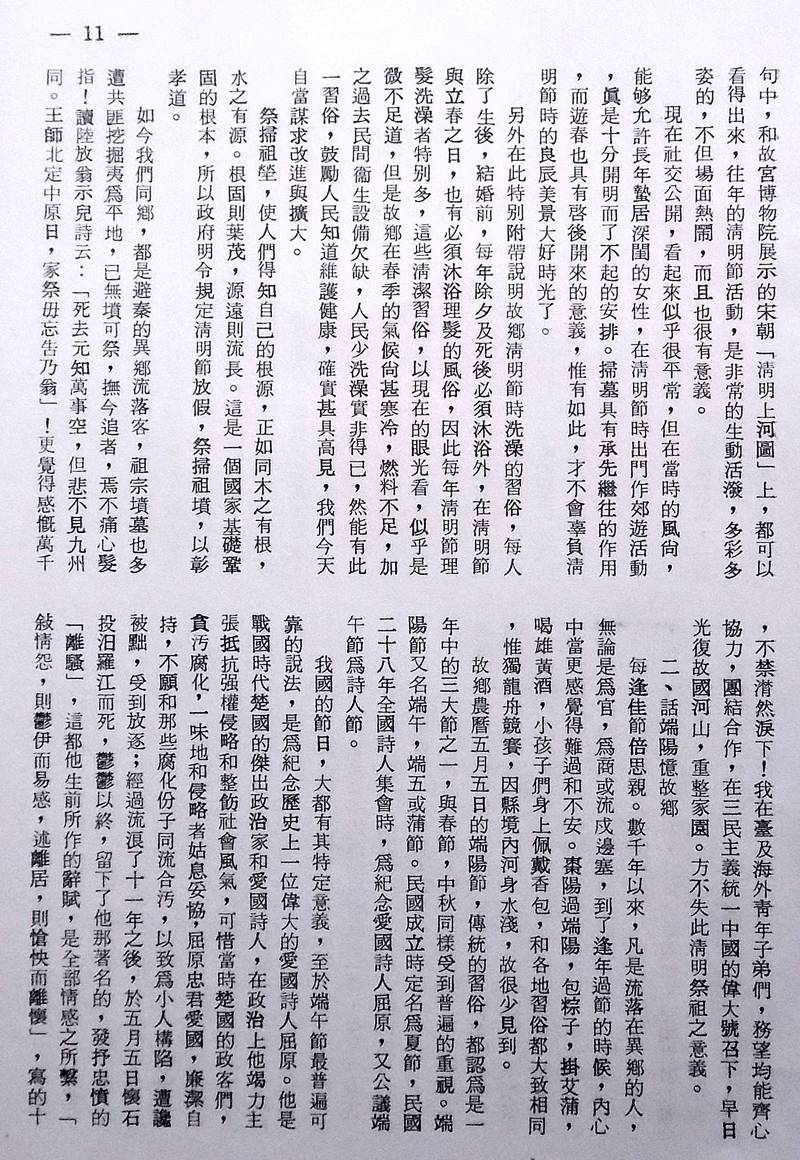 — 11 —
句中，和故宮博物院展示的宋朝「清明上河圖」上，都可以
看得出來，往年的清明節活動，是非常的生動活潑，多彩多
姿的，不但場面熱鬧，而且也很有意義。
現在社交公開，看起來似乎很平常，但在當時的風尚，
能够允許長年蟄居深閨的女性，在清明節時出門作郊遊活動
，眞是十分開明而了不起的安排。掃墓具有承先繼往的作用
，而遊春也具有啓後開來的意義，惟有如此，才不會辜負清
明節時的良辰美景大好時光了。
另外在此特別附帶說明故鄉清明節時洗澡的習俗，每人
除了生後，結婚前，每年除夕及死後必須沐浴外，在清明節
與立春之日，也有必須沐浴理髮的風俗，因此每年清明節理
髮洗澡者特別多，這些清潔習俗，以現在的眼光看，似乎是
微不足道，但是故鄉在春季的氣候尙甚寒冷，燃料不足，加
之過去民間衞生設備欠缺，人民少洗澡實非得已，然能有此
一習俗，鼓勵人民知道維護健康，確實甚具高見，我們今天
自當謀求改進與擴大。
祭掃祖塋，使人們得知自己的根源，正如同木之有根，
水之有源。根固則葉茂，源遠則流長。這是一個國家基礎鞏
固的根本，所以政府明令規定清明節放假，祭掃祖墳，以彰
孝道。
如今我們同鄉，都是避秦的異鄉流落客，祖宗墳墓也多
遭共匪挖掘夷爲平地，已無墳可祭，撫今追者，焉不痛心髮
指！讀陸放翁示兒詩云：「死去元知萬事空，但悲不見九州
同。王師北定中原日，家祭毋忘告乃翁」！更覺得感慨萬千
，不禁潸然淚下！我在臺及海外靑年子弟們，務望均能齊心
協力，團結合作，在三民主義統一中國的偉大號召下，早日
光復故國河山，重整家園。方不失此清明祭祖之意義。
二、話端陽憶故鄉
每逢佳節倍思親。數千年以來，凡是流落在異鄉的人，
無論是爲官，爲商或流戍邊塞，到了逢年過節的時候，內心
中當更感覺得難過和不安。棗陽過端陽，包粽子，掛艾蒲，
喝雄黃酒，小孩子們身上佩戴香包，和各地習俗都大致相同
，惟獨龍舟競賽，因縣境內河身水淺，故很少見到。
故鄉農曆五月五日的端陽節，傳統的習俗，都認爲是一
年中的三大節之一，與春節，中秋同樣受到普遍的重視。端
陽節又名端午，端五或蒲節。民國成立時定名爲夏節，民國
二十八年全國詩人集會時，爲紀念愛國詩人屈原，又公議端
午節爲詩人節。
我國的節日，大都有其特定意義，至於端午節最普遍可
靠的說法，是爲紀念歷史上一位偉大的愛國詩人屈原。他是
戰國時代楚國的傑出政治家和愛國詩人，在政治上他竭力主
張抵抗强權侵略和整飭社會風氣，可惜當時楚國的政客們，
貪汚腐化，一味地和侵略者姑息妥協，屈原忠君愛國，廉潔自
持，不願和那些腐化份子同流合汚，以致爲小人構陷，遭讒
被黜，受到放逐；經過流浪了十一年之後，於五月五日懷石
投汨羅江而死，鬱鬱以終，留下了他那著名的，發抒忠憤的
「離騷」，這都他生前所作的辭賦，是全部情感之所繫，「
敍情怨，則鬱伊而易感，述離居，則愴怏而離懷」，寫的十